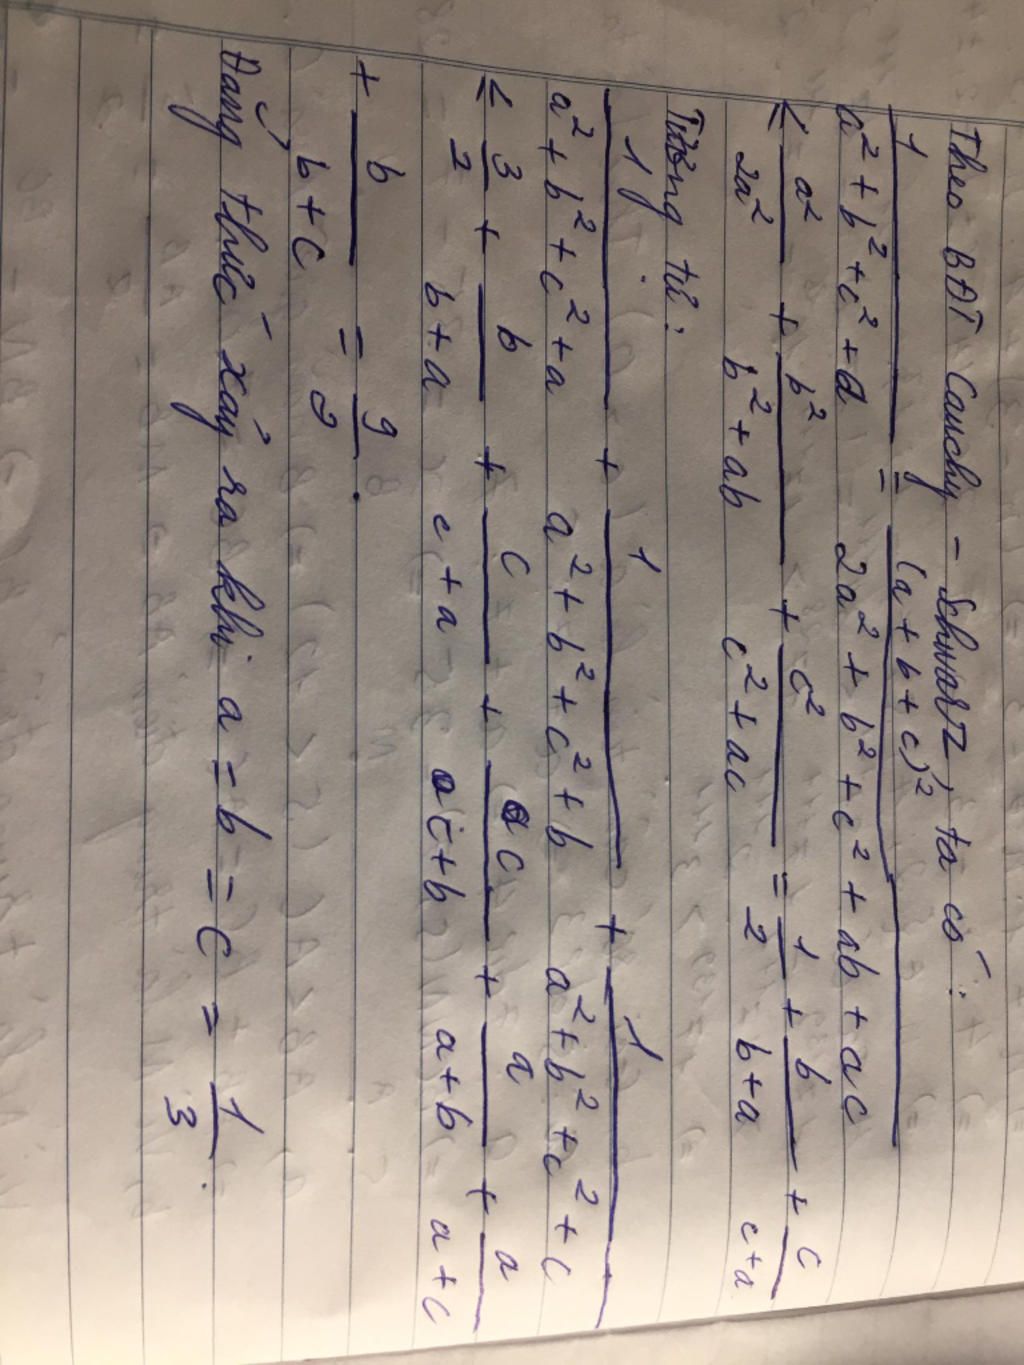 Theo BĐT Cauchy - Schwarz, ta có:
1/(a² + b² + c² + a) = (a + b + c)²/(2a² + b² + c² + ab + ac)
≤ a²/2a² + b²/(b² + ab) + c²/(c² + ac) = 1/2 + b/(b+a) + c/(c+a)
Tương tự:
1/(a² + b² + c² + a) + 1/(a² + b² + c² + b) + 1/(a² + b² + c² + c)
≤ 3/2 + b/(b+a) + c/(c+a) + c/(c+b) + a/(a+b) + a/(a+c)
+ b/(b+c) = 9/2.
Đẳng thức xảy ra khi a = b = c = 1/3.